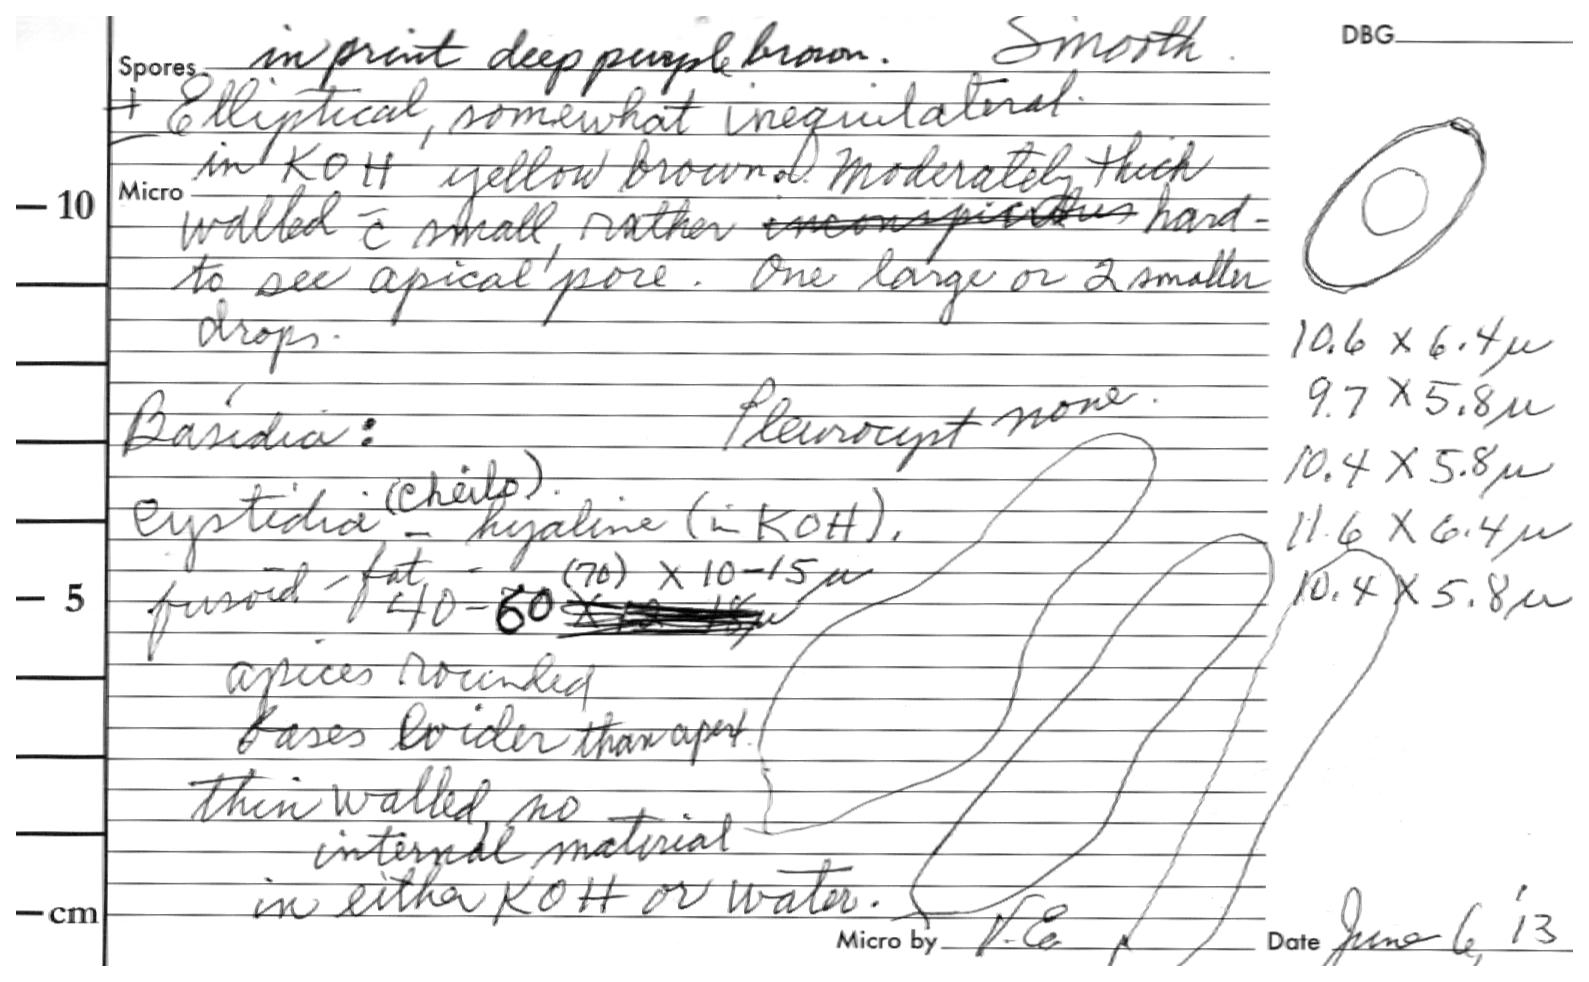 DBG
Spores in print deep purple brown. Smooth.
+ Elliptical, somewhat inequilateral.
in KOH yellow brown. Moderately thick
Micro
10
walled c̄ small, rather inconspicuous hard-
to see apical pore. One large or 2 smaller
drops.
10.6 X 6.4 µ
9.7 X 5.8 µ
10.4 X 5.8 µ
11.6 X 6.4 µ
10.4 X 5.8 µ
Basidia: Pleurocyst none.
(cheilo).
cystidia - hyaline (in KOH).
fusoid - fat - (70) X 10-15 µ
5
40-60 X 12 18 µ
apices rounded
bases wider than apex.
thin walled, no
internal material
in either KOH or water.
cm
Micro by V.E. Date June 6, '13